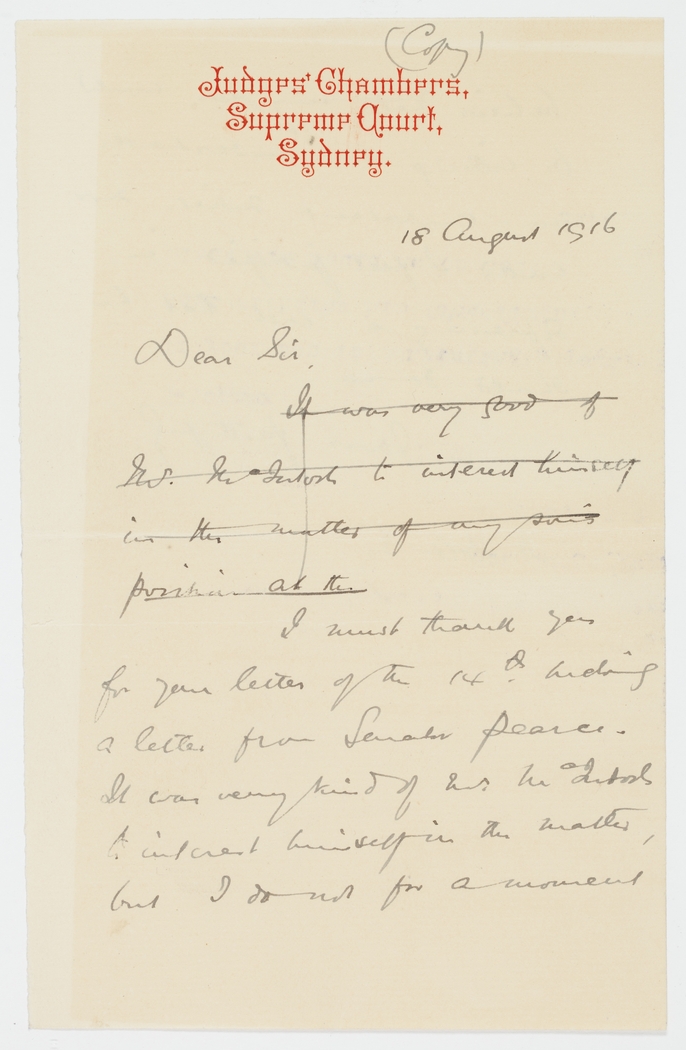 (Copy)
Judges' Chambers,
Supreme Court,
Sydney.
18 August 1916
Dear Sir,
It was very good of
Mr. McIntosh to interest himself
in the matter of my son's
position at the
I must thank you
for your letter of the 14th. inclosing
a letter from Senator Pearce.
It was very kind of Mr. McIntosh
to interest himself in the matter,
but I do not for a moment